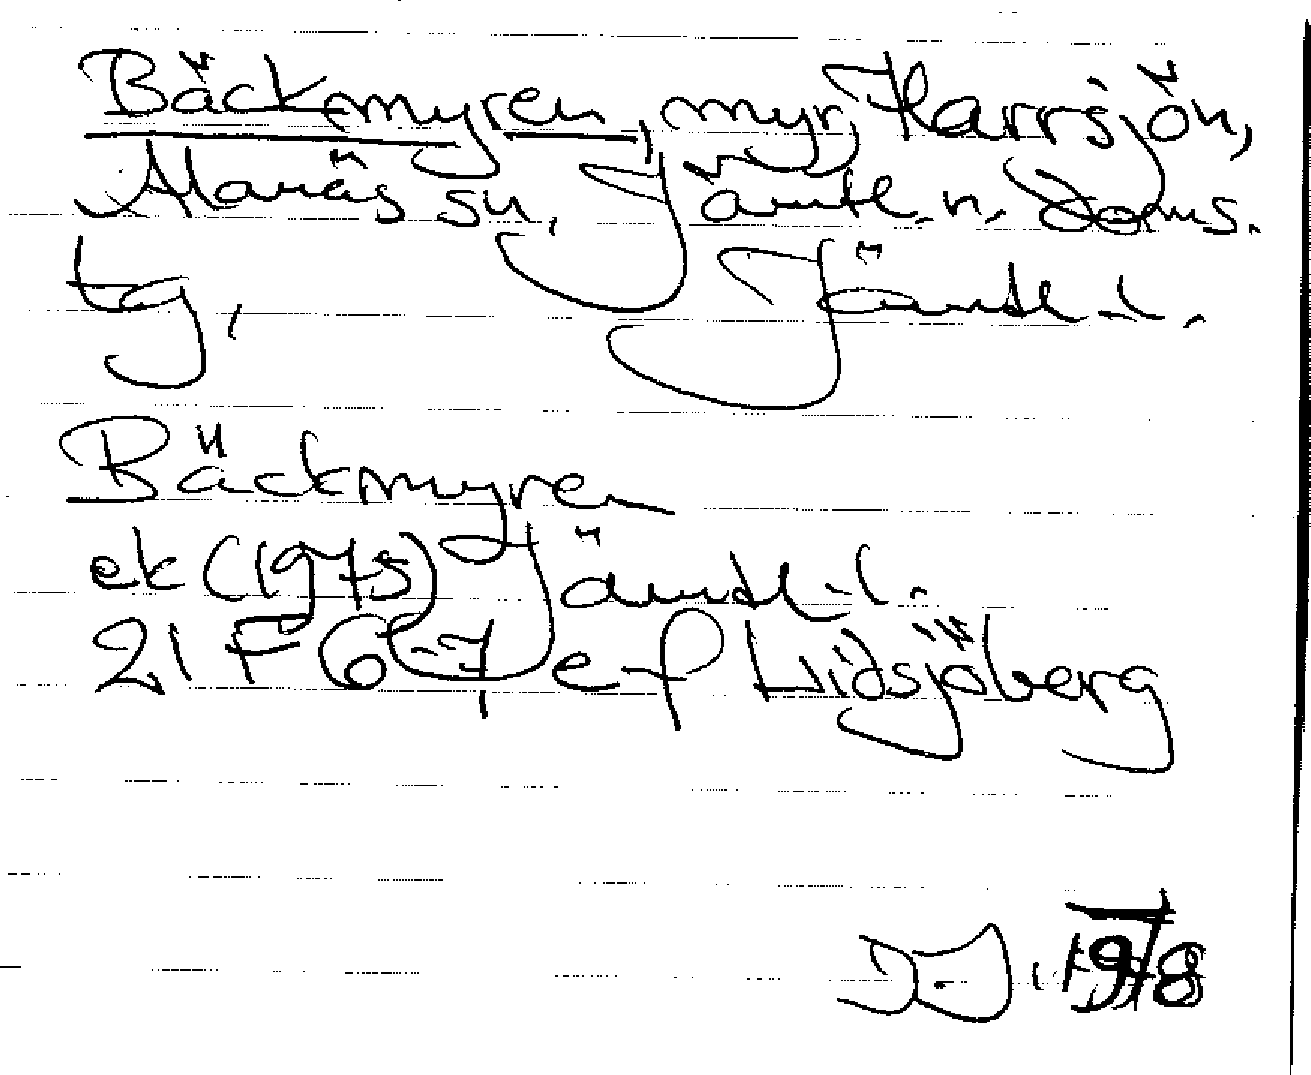 Bäckmyren, myr, Harrsjön,
Alanäs sn, Jämtl. n. doms.
tg, Jämtl. l.
Bäckmyren
ek (1975) Jämtl. l.
21 F 6-7 ef Lidsjöberg
1978